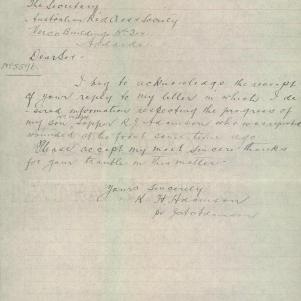 The Secretary
Australian Red Cross Society
Adelaide
Dear Sir
I beg to acknowledge the receipt
of your reply to my letter in which I de
sired information respecting the progress of
my son Sapper R. J. Adamson who was reported
wounded at the front some time ago
Please accept my most sincere thanks
for your trouble in this matter
Yours Sincerely
K H Adamson
Adamson